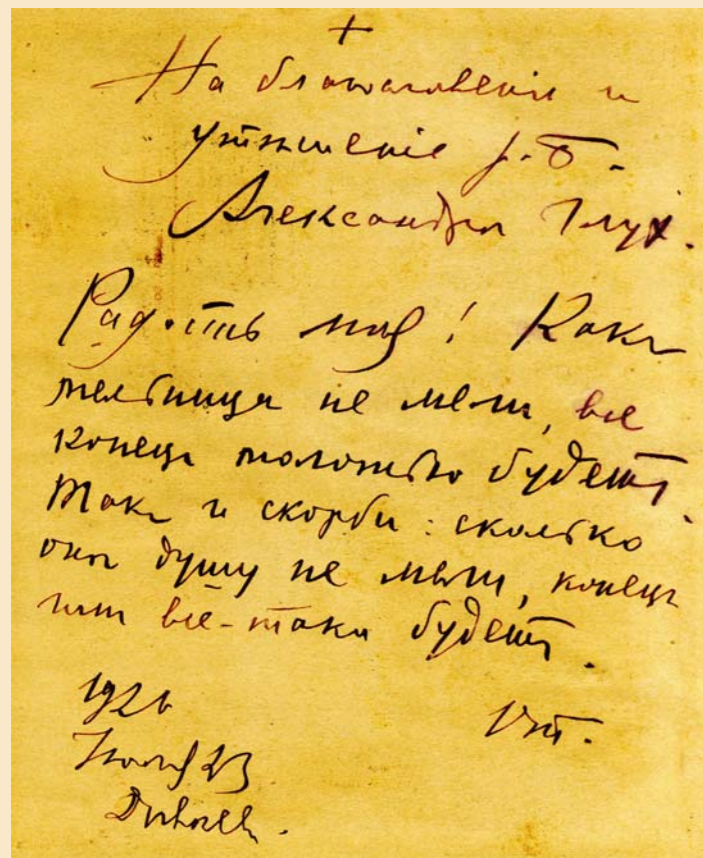 +
На благословеніе и
утѣшеніе р. Б.
Александры Глух.
Радость моя! Какъ
мельница не мели, все
конецъ будетъ.
Такъ и скорби: сколько
онѣ душу не мели, конецъ
имъ все-таки будетъ.
1926
Июля 23